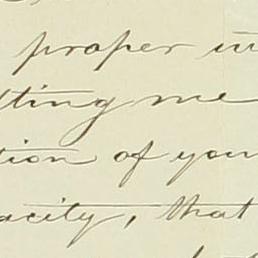 proper in
tting me
tion of your
acity, that